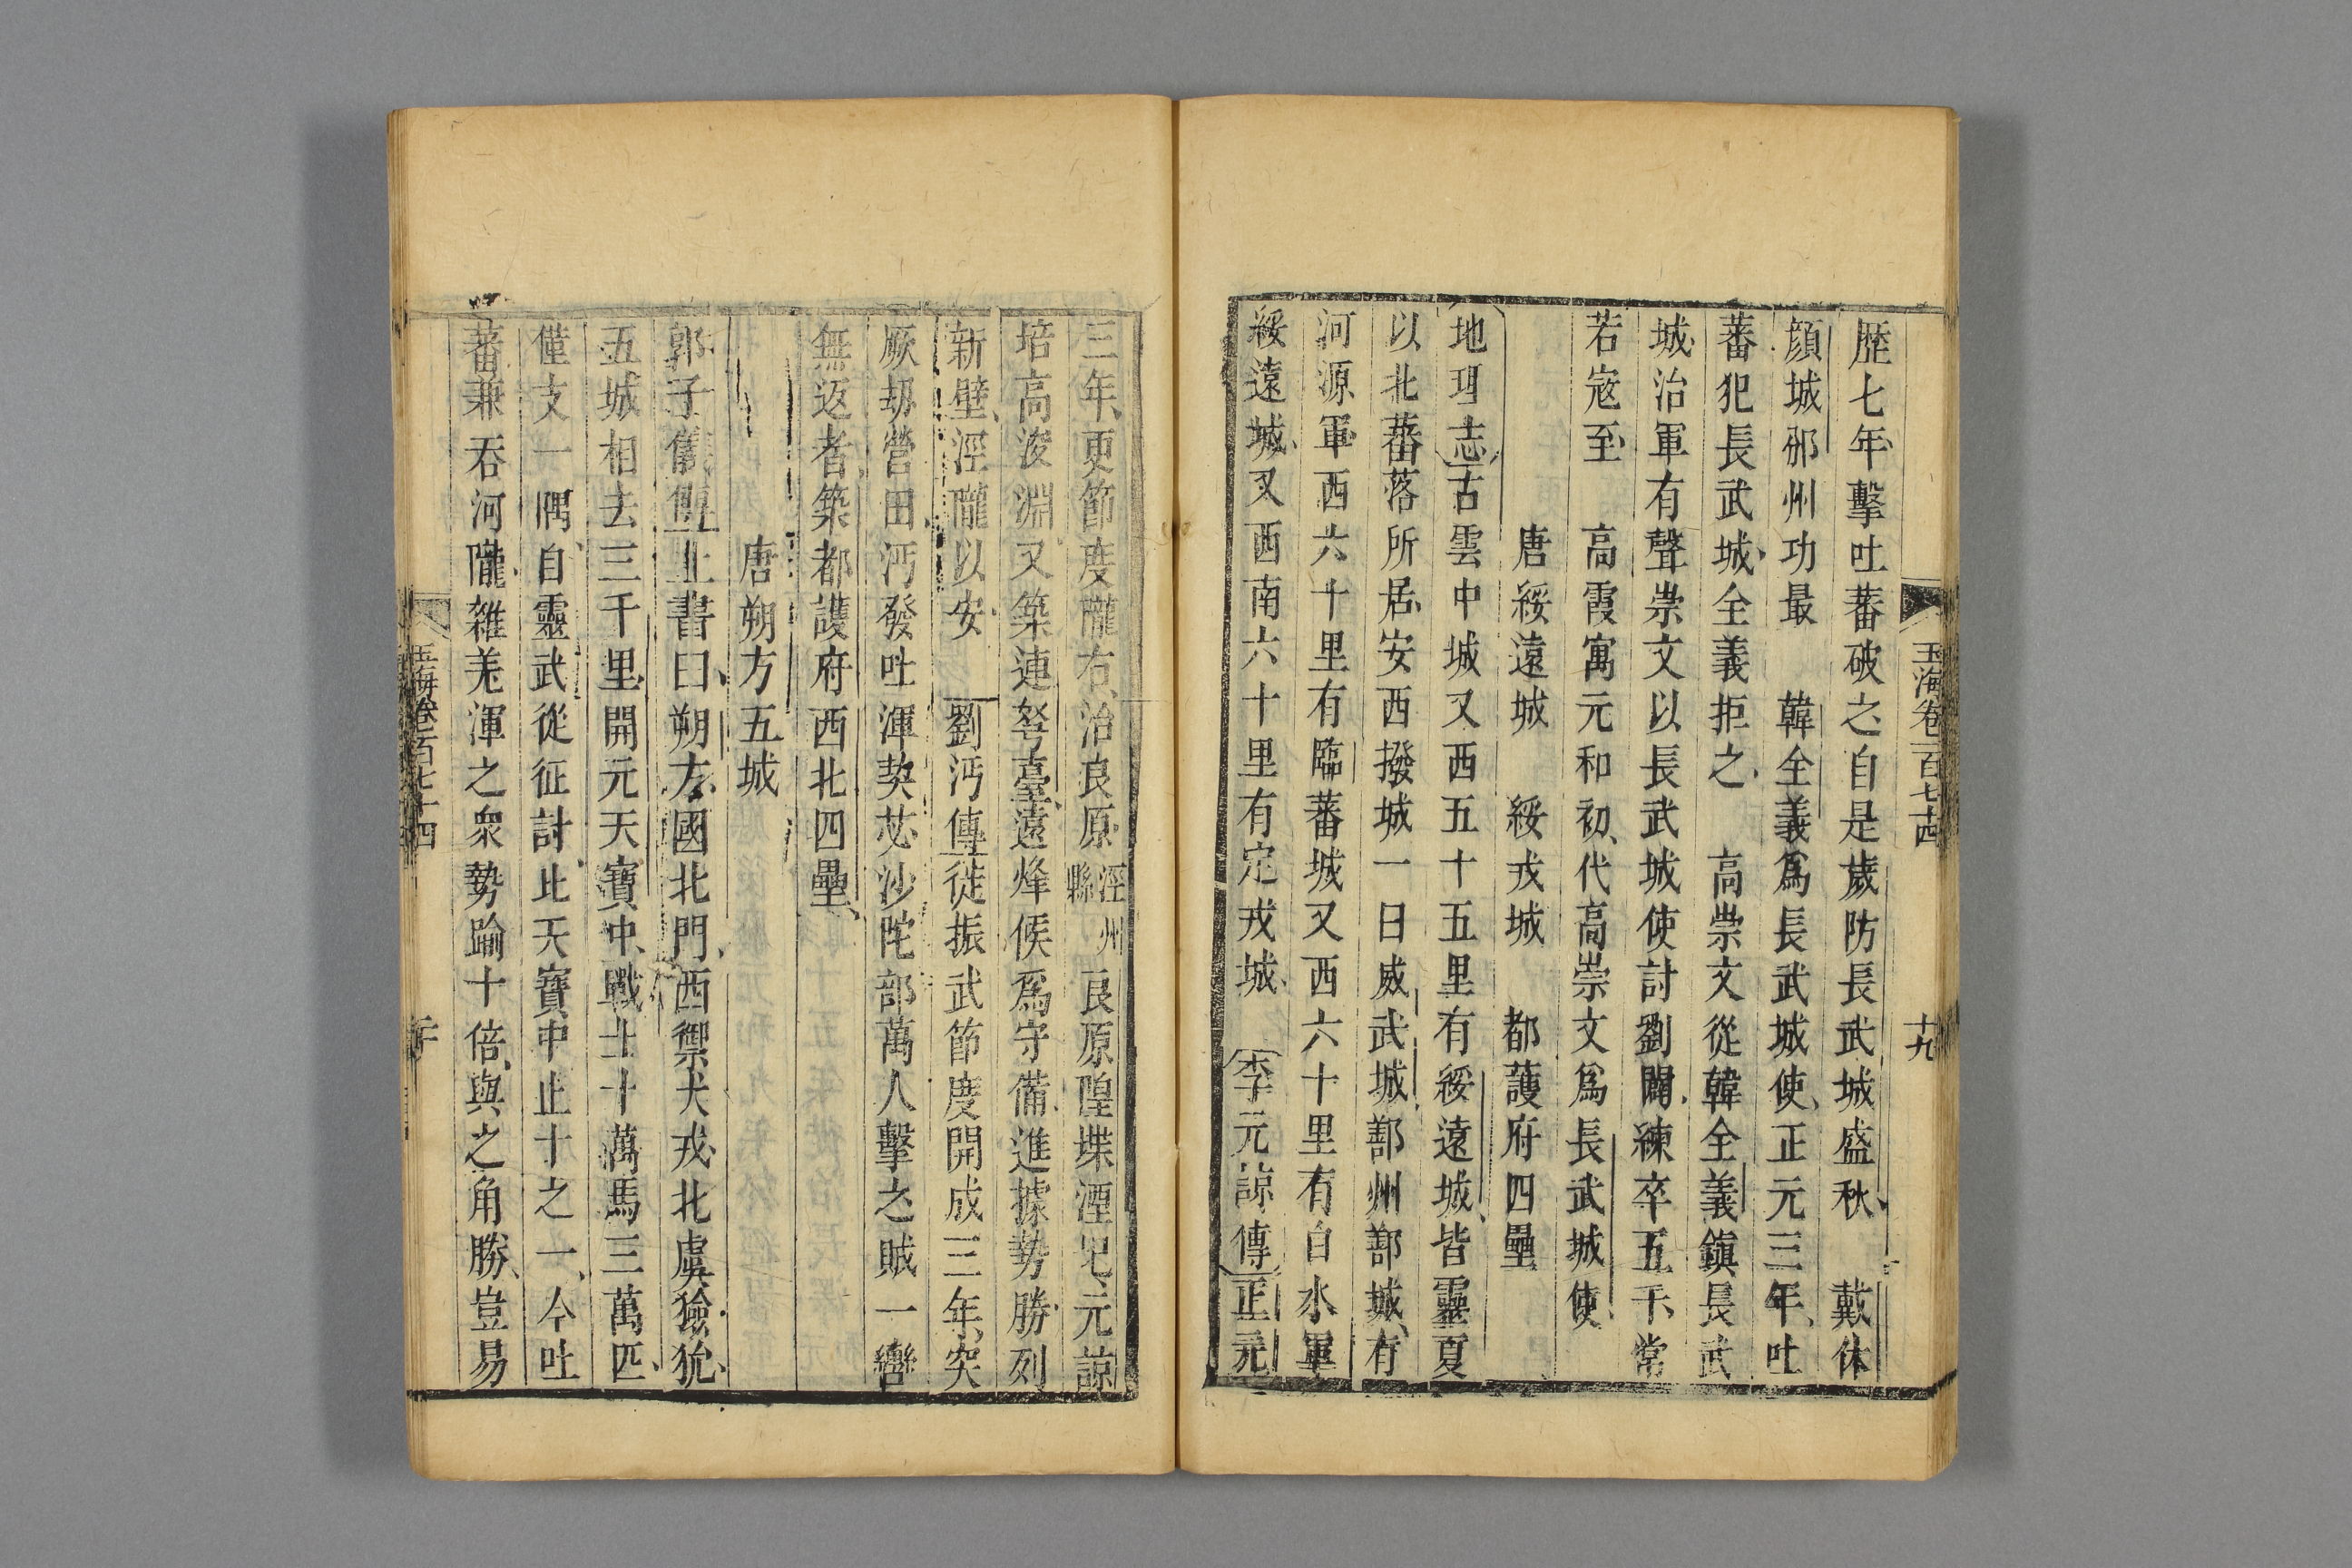 玉海卷一百七十四 十九
歷七年擊吐蕃破之自是歲防長武城盛秋 戴休
顏城邠州功最 韓全義爲長武城使正元三年吐
蕃犯長武城全義拒之 高崇文從韓全義鎭長武
城治軍有聲崇文以長武城使討劉闢練卒五千常
若寇至 高霞寓元和初代高崇文爲長武城使
唐綏遠城 綏戎城 都護府四壘
地理志古雲中城又西五十五里有綏遠城皆靈夏
以北蕃落所居安西撥城一曰威武城鄯州鄯城有
河源軍西六十里有臨蕃城又西六十里有白水軍
綏遠城又西南六十里有定戎城 李元諒傳正元
三年更節度隴右治良原涇州縣良原隍堞湮圮元諒
培高浚淵又築連弩臺遠烽候爲守備進據勢勝列
新壁涇隴以安 劉沔傳徙振武節度開成三年突
厥刼營田沔發吐渾契苾沙陀部萬人擊之賊一轡
無返者築都護府西北四壘
唐朔方五城
郭子儀傳上書曰朔方國北門西禦犬戎北虞獫狁
五城相去三千里開元天寶中戰士十萬馬三萬匹
僅支一隅自靈武從征討比天寶中止十之一今吐
蕃兼吞河隴雜羌渾之衆勢踰十倍與之角勝豈易
玉海卷一百七十四